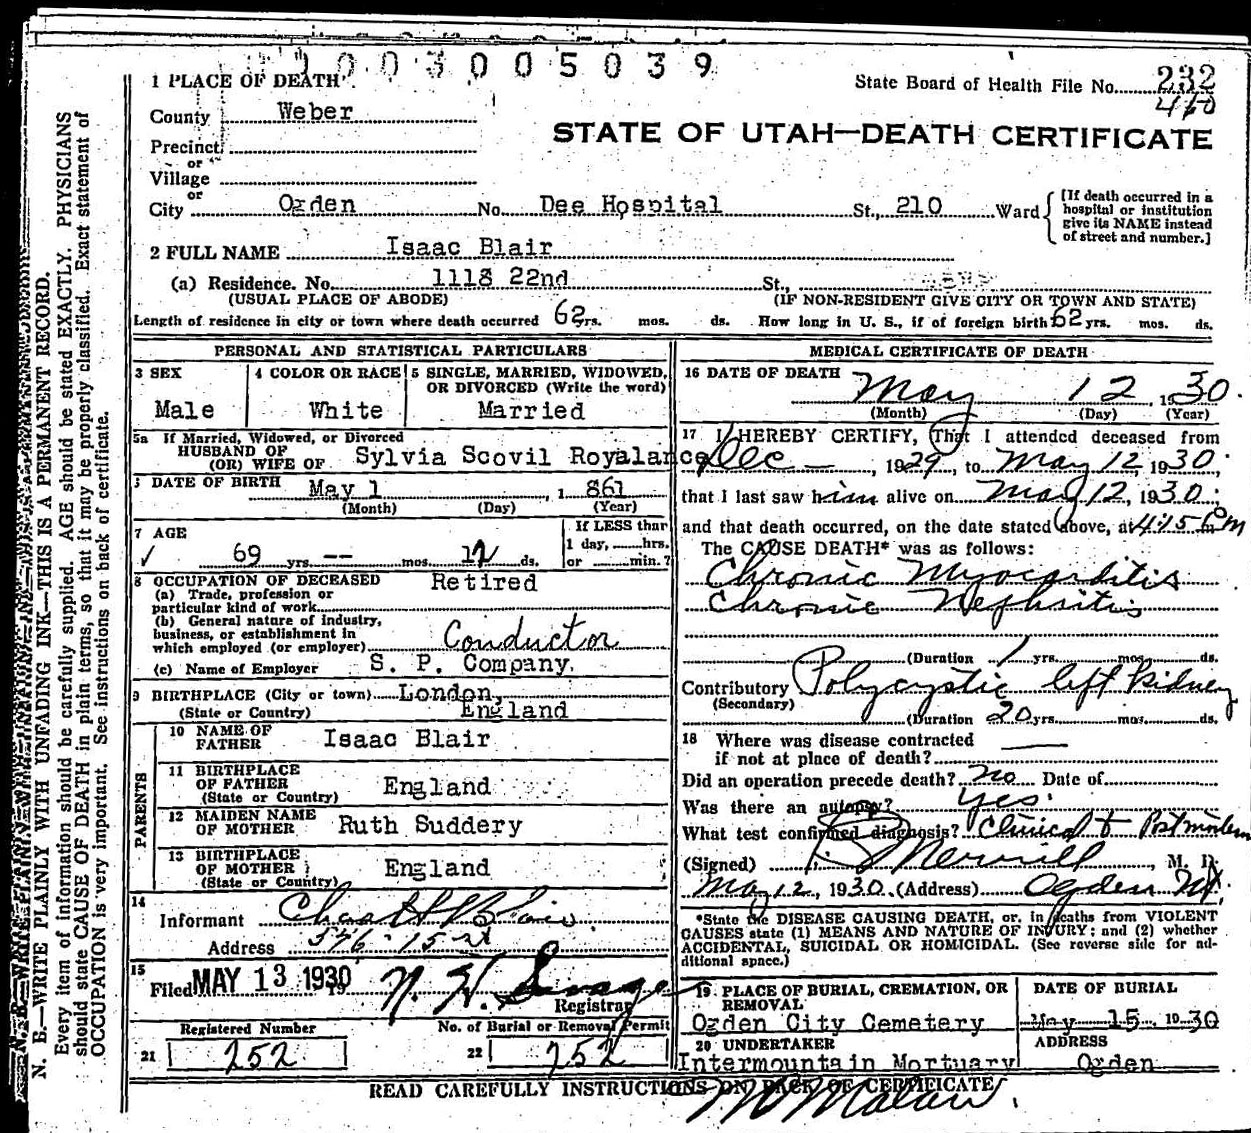 1003005039
1 PLACE OF DEATH
State Board of Health File No. 232
460
County Weber
STATE OF UTAH—DEATH CERTIFICATE
Precinct
or
Village
or
City Ogden No. Dee Hospital St., 210 Ward
[If death occurred in a hospital or institution give its NAME instead of street and number.]
2 FULL NAME Isaac Blair
(a) Residence. No. 1118 22nd St.,
(USUAL PLACE OF ABODE) (IF NON-RESIDENT GIVE CITY OR TOWN AND STATE)
Length of residence in city or town where death occurred 62 yrs. mos. ds. How long in U. S., if of foreign birth 62 yrs. mos. ds.
PERSONAL AND STATISTICAL PARTICULARS
3 SEX
Male
4 COLOR OR RACE
White
5 SINGLE, MARRIED, WIDOWED,
OR DIVORCED (Write the word)
Married
5a If Married, Widowed, or Divorced
HUSBAND OF
(OR) WIFE OF Sylvia Scovil Royalance
DATE OF BIRTH May 1, 1861
(Month) (Day) (Year)
7 AGE
69 yrs. -- mos. 12 ds.
If LESS than
1 day, hrs.
or min.?
8 OCCUPATION OF DECEASED Retired
(a) Trade, profession or
particular kind of work
(b) General nature of industry,
business, or establishment in
which employed (or employer) Conductor
(c) Name of Employer S. P. Company.
9 BIRTHPLACE (City or town) London,
(State or Country) England
PARENTS
10 NAME OF
FATHER Isaac Blair
11 BIRTHPLACE
OF FATHER England
(State or Country)
12 MAIDEN NAME
OF MOTHER Ruth Suddery
13 BIRTHPLACE
OF MOTHER England
(State or Country)
14
Informant Chas H Blair
Address
15
Filed MAY 13 1930 19
Registrar
Registered Number
21 252
No. of Burial or Removal Permit
22 252
MEDICAL CERTIFICATE OF DEATH
16 DATE OF DEATH
May 12, 1930.
(Month) (Day) (Year)
17 I HEREBY CERTIFY, That I attended deceased from
Dec —, 1929, to May 12, 1930,
that I last saw him alive on May 12, 1930;
and that death occurred, on the date stated above, at 4:15 Pm
The CAUSE DEATH* was as follows:
Chronic Myocarditis
Chronic Nephritis
(Duration 1 yrs. mos. ds.
Contributory Polycystic left kidney
(Secondary)
(Duration 20 yrs. mos. ds.
18 Where was disease contracted
if not at place of death?
Did an operation precede death? no Date of
Was there an autopsy? yes.
What test confirmed diagnosis? Clinical + Postmortem
(Signed) Merrill, M. D.
May 12, 1930. (Address) Ogden Ut.
*State the DISEASE CAUSING DEATH, or, in deaths from VIOLENT
CAUSES state (1) MEANS AND NATURE OF INJURY; and (2) whether
ACCIDENTAL, SUICIDAL OR HOMICIDAL. (See reverse side for ad-
ditional space.)
19 PLACE OF BURIAL, CREMATION, OR
REMOVAL
Ogden City Cemetery
DATE OF BURIAL
May 15, 1930
20 UNDERTAKER
Intermountain Mortuary
ADDRESS
Ogden
READ CAREFULLY INSTRUCTIONS ON BACK OF CERTIFICATE
N. B.—WRITE PLAINLY WITH UNFADING INK—THIS IS A PERMANENT RECORD.
Every item of information should be carefully supplied. AGE should be stated EXACTLY. PHYSICIANS
should state CAUSE OF DEATH in plain terms, so that it may be properly classified. Exact statement of
OCCUPATION is very important. See instructions on back of certificate.